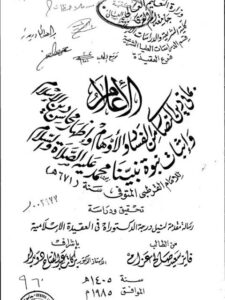 وزارة التعليم العالي
جامعة أم القرى
كلية الشريعة والدراسات الإسلامية
قسم الدراسات العليا الشرعية
فرع العقيدة
الإعلام
بما في دين النصارى من الفساد والأوهام وإظهار محاسن دين الإسلام
وإثبات نبوة نبينا محمد عليه الصلاة والسلام
للإمام القرطبي المتوفى سنة (٦٧١هـ)
تحقيق ودراسة
رسالة مقدمة لنيل درجة الدكتوراة في العقيدة الإسلامية
من الطالب
بإشراف
فايز سعيد صالح عزام
سنة ١٤٠٥هـ
الموافق ١٩٨٥م